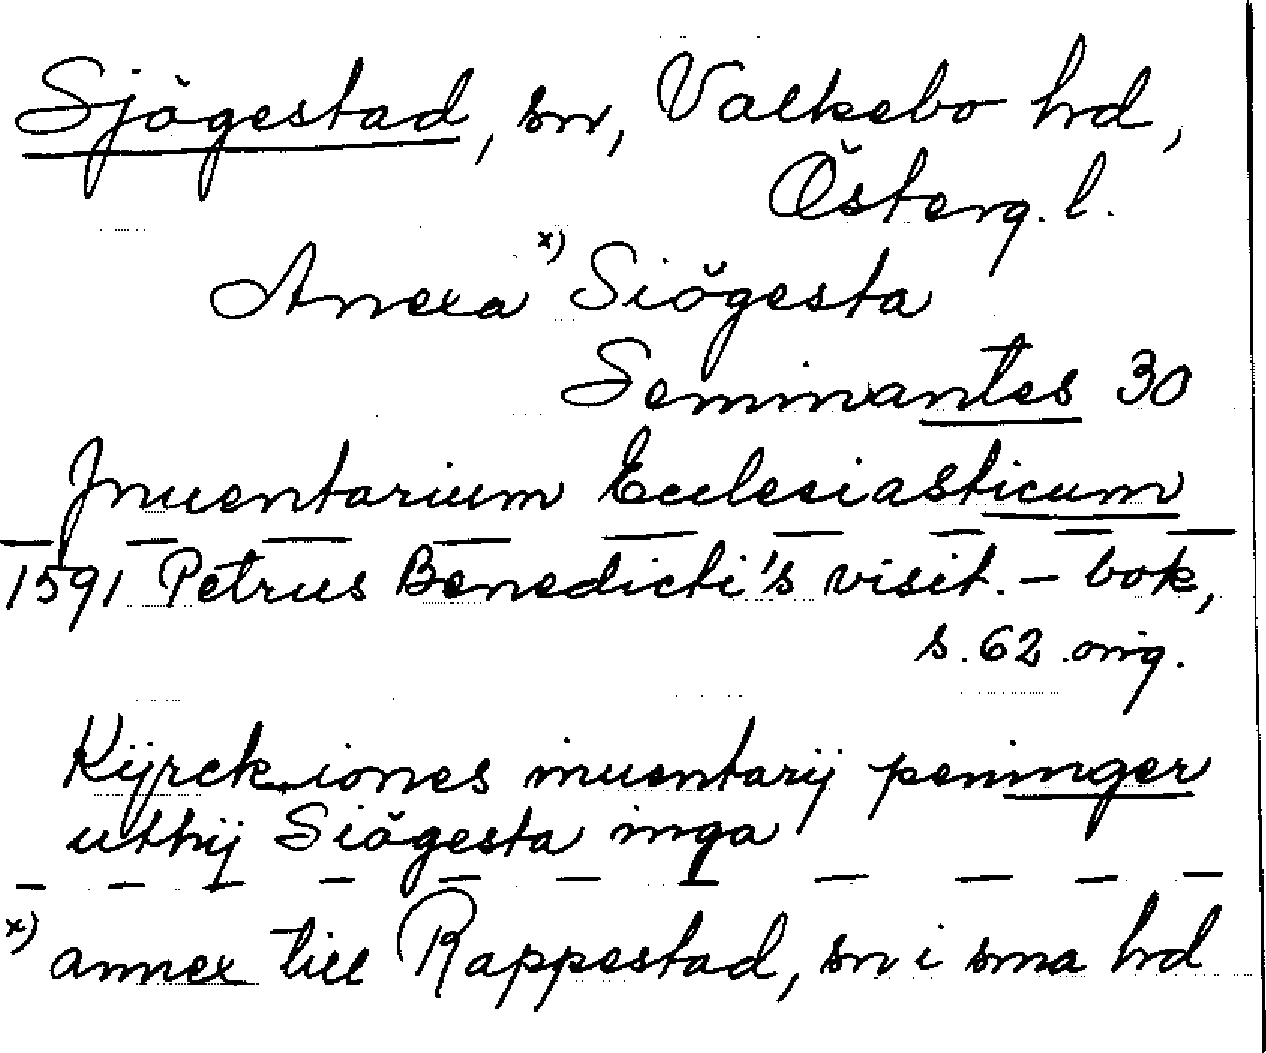 Sjögestad, sn, Valkebo hd,
Österg. l.
Anexa x) Siögesta
Seminantes 30
Inuentarium Ecclesiasticum
1591 Petrus Benedicti's visit. - bok,
s. 62 orig.
Kÿrckiones inuentarij peninger
utthij Siögesta inga
x) annex till Rappestad, sn i sma hd